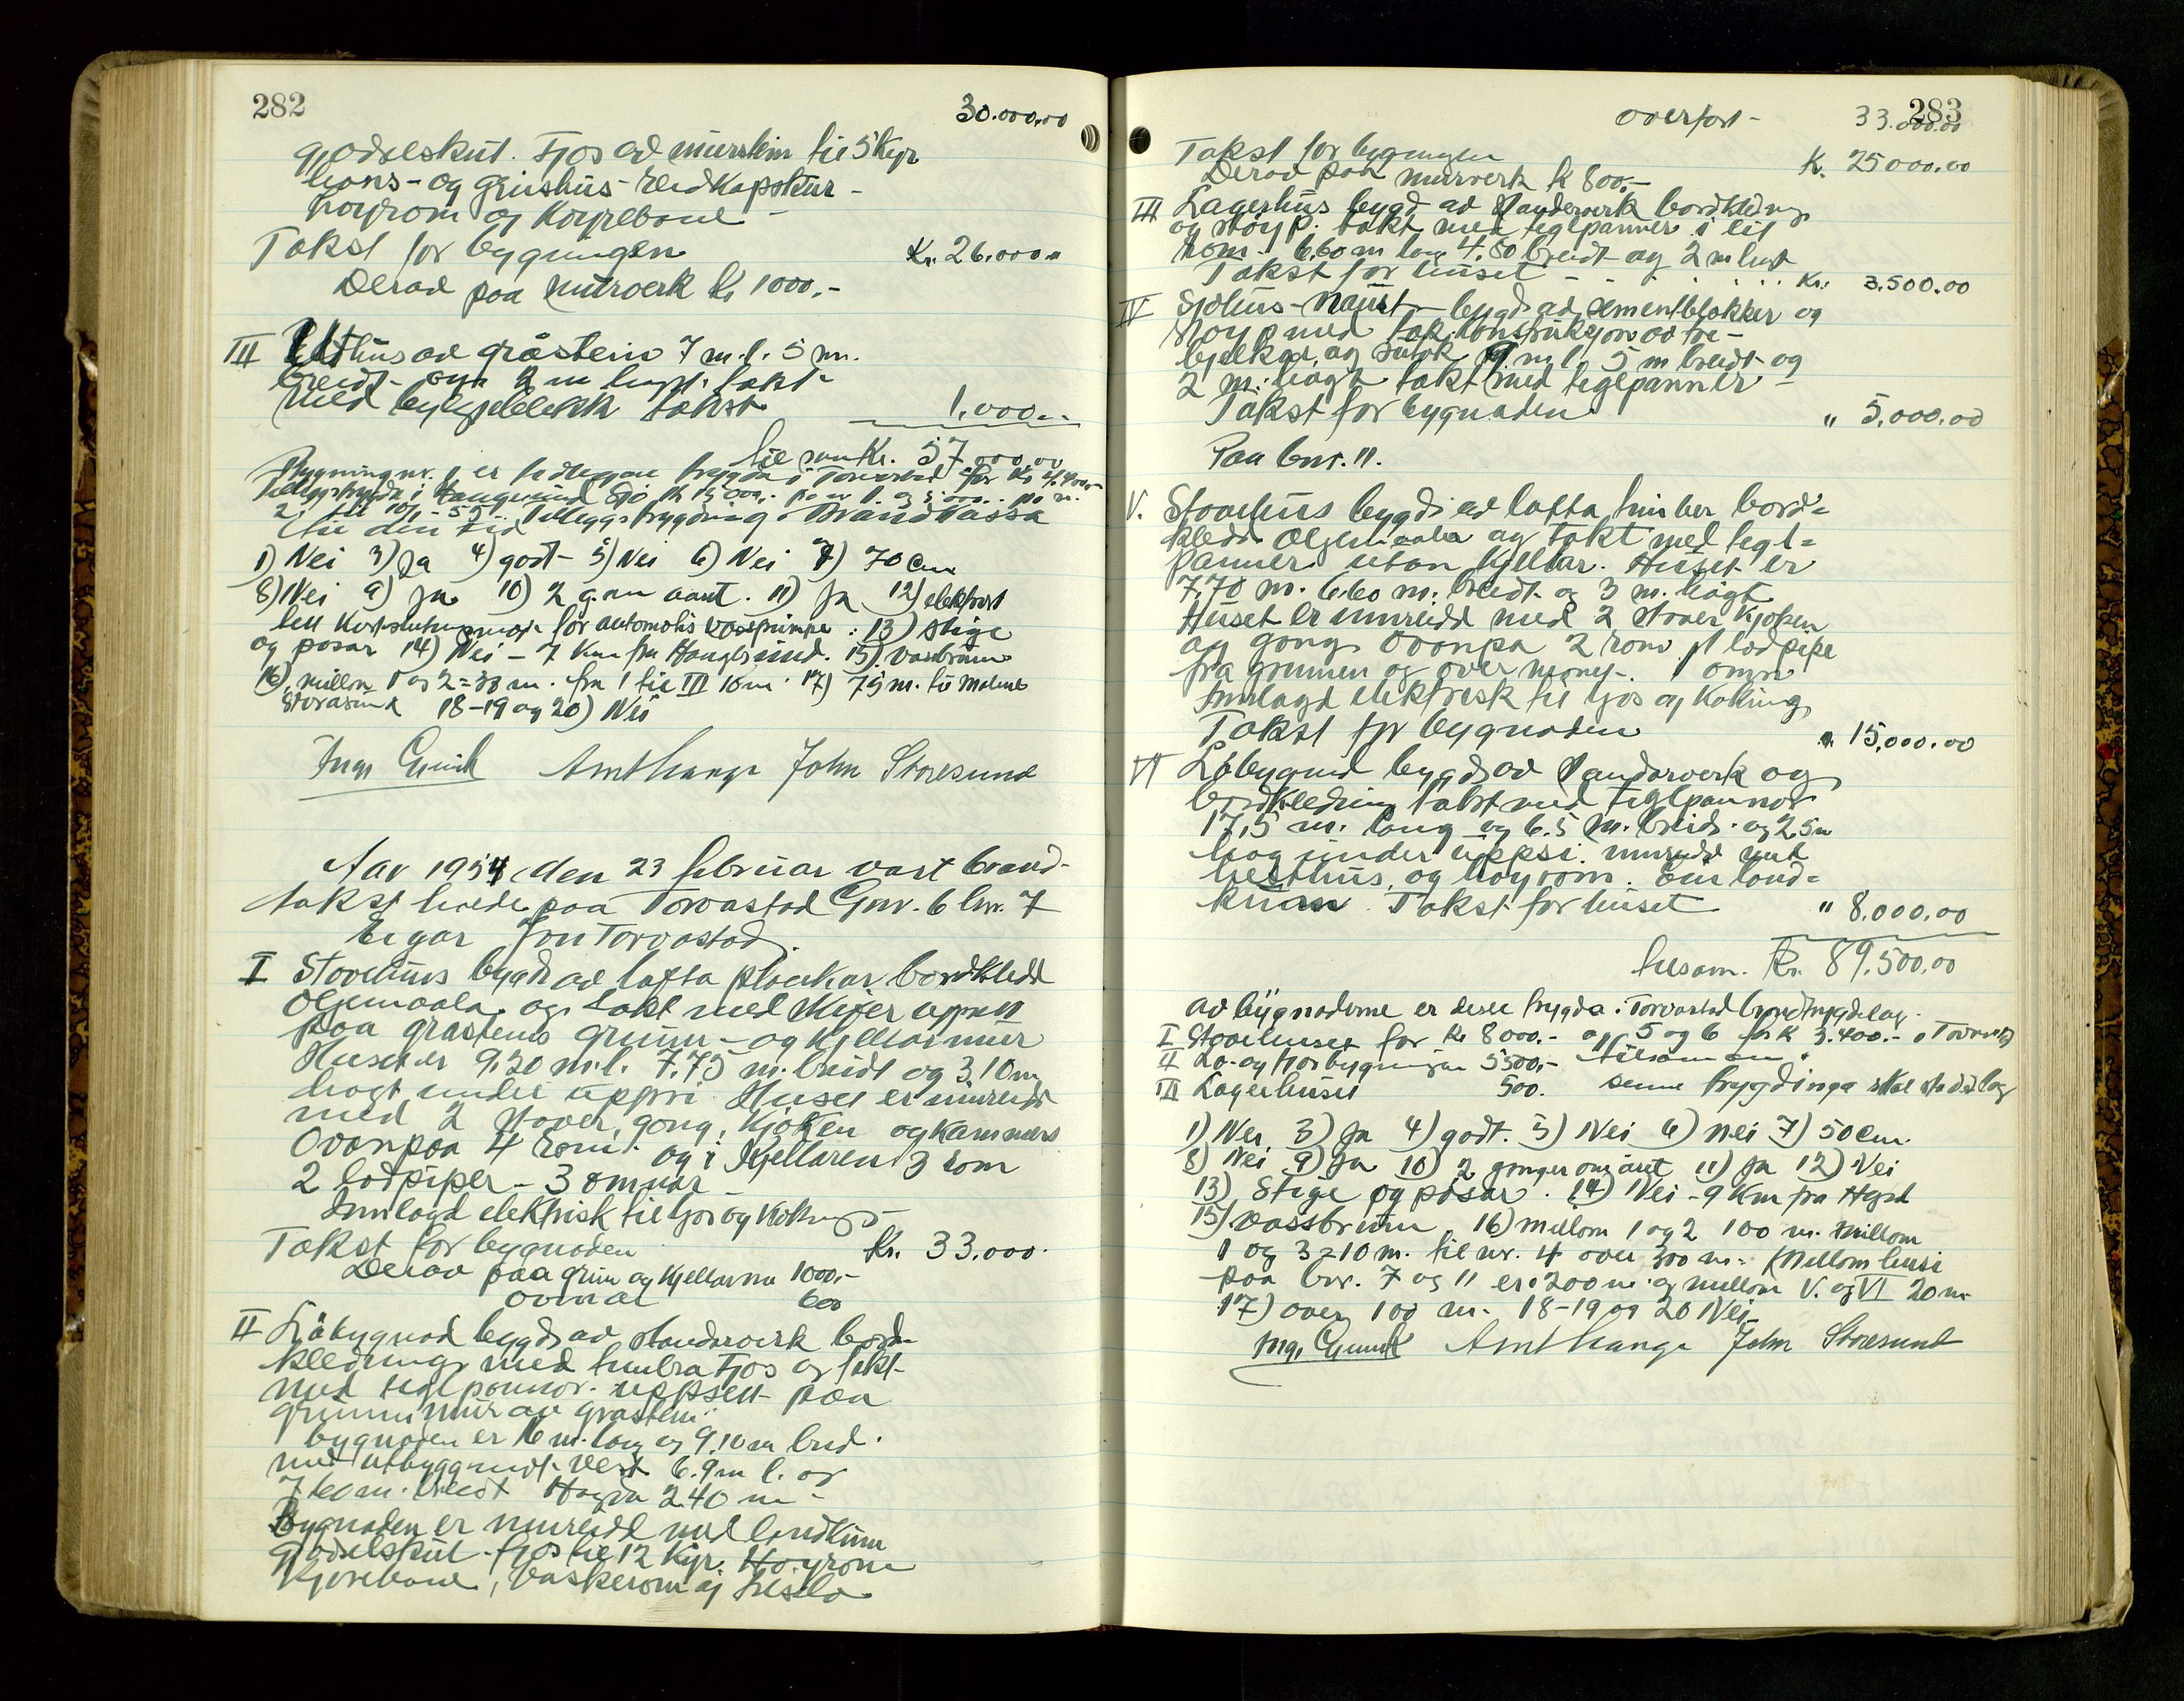 282
30.000.00
gjødselskut. Fjøs av murstein til 5 kyr
høns- og grishus- redskapskur -
høyrom og køyrebane -
Takst for bygningen Kr. 26.000 "
Derav paa murverk Kr 1000.-
III Uthus av gråstein 7 m. l. 5 m.
breidt- og 2 m høgt. takt-
med takst 1.000..
til sam Kr. 57.000.00
Bygning nr. 1 er trygda i Torvastad for Kr
i Haugesund Sjø
2 til 10/1-55. Tilleggstrygding i Brandkassa
til din tid
1) Nei 3) Ja 4) godt- 5) Nei 6) Nei 7) 70 Cm
8) Nei 9) Ja 10) 2 g. um aaret. 11) Ja 12) elektrisk
for automatis vasspumpe : 13) stige
og pøsar 14) Nei - 7 Km fra Haugesund. 15) vassbrønn
16) millom 1 og 2 = 38 m. fra 1 til III 18 m. 17) 75 m. til
Storasund 18-19 og 20) Nei
Amt Hauge John Storesund
Aar 1954 den 23 februar vart brand-
takst halde paa Torvastad Gnr. 6 bnr. 7
Eigar Jon Torvastad.
I Stovehus bygd av lafta plankar bordkledd
oljemaala og takt med skifer uppsett
paa gråsteins grunn- og kjellarmur
Huset er 9.20 m. l. 7.75 m. breidt og 3.10 m
høgt under uppsi. Huset er innreidd
med 2 stover, gong, kjøken og kammers
Ovanpaa 4 rom. og i kjellaren 3 rom
2 lodpiper - 3 omnar -
Innlagd elektrisk til ljos og koking -
Takst for bygnaden Kr. 33.000.
Derav paa grunn og kjellarmur 1000.-
ovnar 600
II Løbygnad bygd av standarverk bord-
kledning med timbra fjøs og takt-
med teglpannor. uppsett paa
grunnmur av gråstein.
bygnaden er 16 m. lang og 9.10 m breid.
med utbygg mot Vest 6.9 m l. og
7.60 m. breidt Høgda 2.40 m -
Bygnaden er innreidd med landkunn
gjødselskut- fjøs til 12 kyr. Høyrom
kjørebane, vaskerom og
283
overført - 33.000.00
Takst for bygningen K. 25000.00
Derav paa murverk K 800.-
III Lagerhus bygd av standerverk bordkledning
og støyp. takt med teglpanner i eit
rom. 6.60 m lang 4.80 breidt og 2 m høgt
Takst for huset - - . . . . . Kr. 3.500.00
IV Sjøhus-Naust- bygd av sementblokker og
støyp med tak konstruksjon av tre-
bjelkar og sutak 9 m l. 5 m breidt og
2 m. høgt takt med teglpanner -
Takst for bygnaden " 5.000.00
Paa bnr. 11.
V. Stovehus bygd av lafta timber bord-
kledd oljemaala og takt med tegl-
panner utan kjellar. Huset er
7.70 m. 6.60 m. breidt og 3 m. høgt
Huset er innreidd med 2 stover kjøken
og gong Ovanpa 2 rom 1 lodpipe
fra grunnen og over mønet-. omn
Innlagd elektrisk til ljos og koking
Takst for bygnaden " 15.000.00
VI Løbygnad bygd av standarverk og
bordkledning takt med teglpannor
17,5 m. lang og 6.5 m. breid. og 2.5 m
høg under uppsi. innreidd med
hesthus, og høyrom. Ein land-
kunn Takst for huset " 8.000.00
til sam. Kr. 89.500.00
av bygnaderne er desse trygda i Torvastad brandtrygdelag.
I Stovehuset for Kr 8000.- og 5 og 6 for k 3.400.- i Torvastad
II Lø- og fjosbygningen 5500.- tilsamman.
III Lagerhuset 500. denne trygdinga skal
1) Nei 3) Ja 4) godt. 5) Nei 6) nei 7) 50 Cm.
8) Nei 9) Ja 10) 2 gonger om året 11) Ja 12) Nei
13) Stige og pøsar. 14) Nei - 9 Km fra Hgsd
15) Vassbrunn. 16) mellom 1 og 2 100 m. millom
1 og 3 = 10 m. til nr. 4 over 300 m. Mellom husi
paa bnr. 7 og 11 er 200 m. og millom V. og VI 20 m
17) over 100 m. 18-19 og 20 Nei
Amt Hauge John Storesund